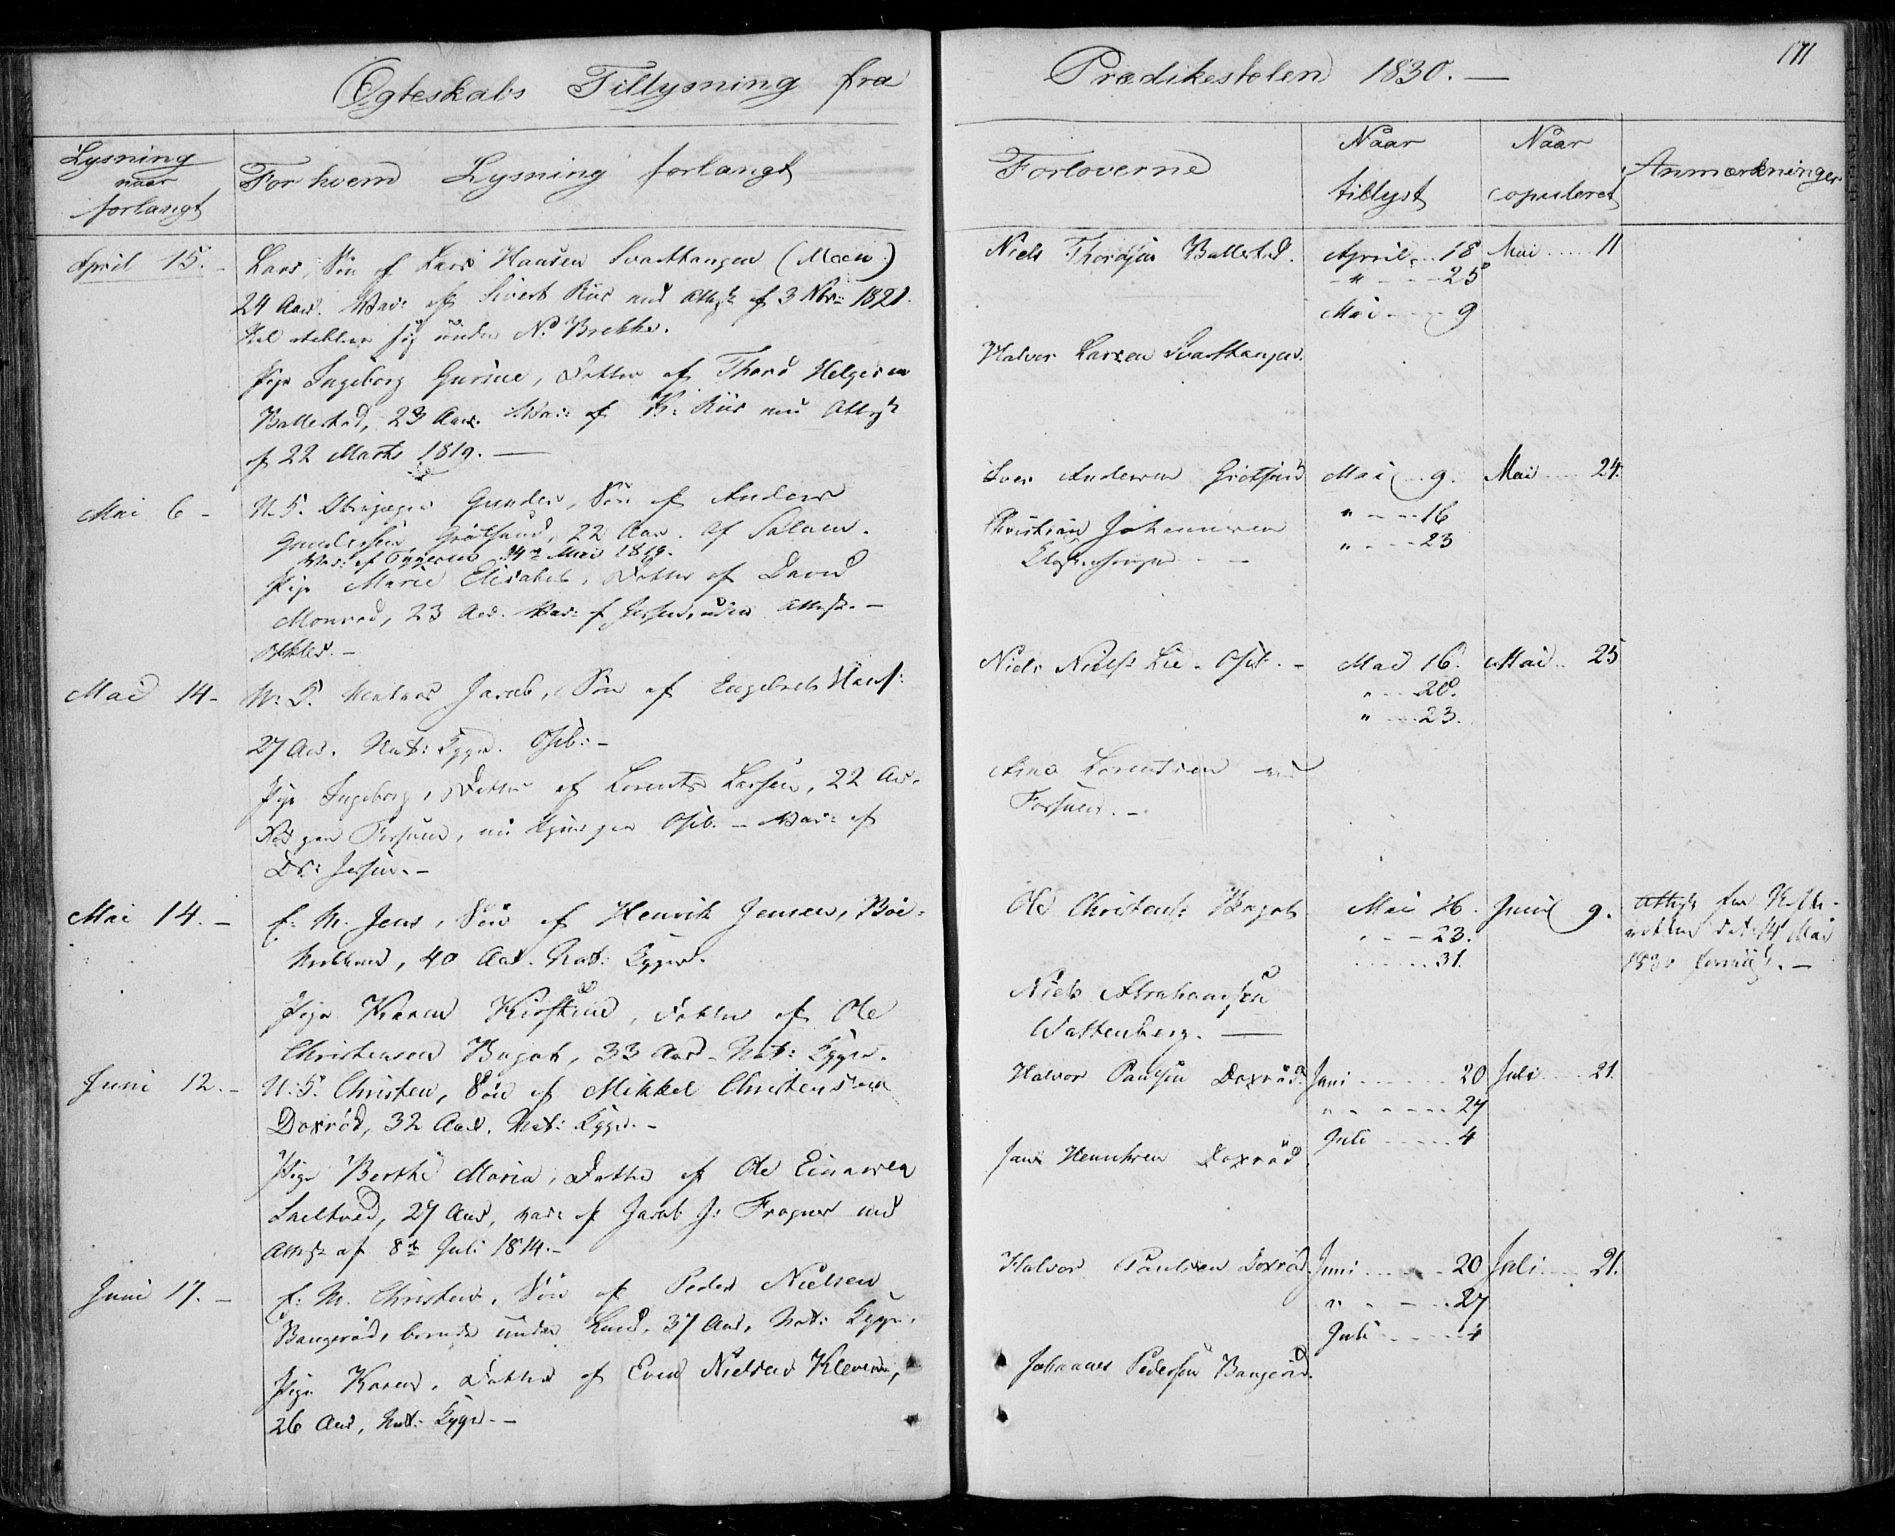 Ægteskabs Tillysning fra Prædikestolen 1830. —
171
Lysning naar forlangt
For hvem Lysning forlangt
Forloverne
Naar tillyst
Naar copuleret
Anmærkninger
April 15. -
Lars, Søn af Lars Hansen Svarttangen (Moen)
24 Aar. Vac: af Sivert Riis med Attest af 3 Nbr: 1821.
under N. Brekke.
Pige Ingeborg Gurine, Datter af Thord Helgesen
Ballestad, 23 Aar. Vac: af Riis med Attest
af 22 Marts 1819. —
Niels Thordsen Ballestad.
Halvor Larsen Svarttangen.
April 18
" - - 25
Mai - - 9
Mai 11
Mai 6 -
Gunder, Søn af Anders
Gundersen Grotsund, 22 Aar. af
Vac: af 14de Mai 1819.
Pige Marie Elisabeth, Datter af David
Monrad, 23 Aar. Vac: af Attest. -
Iver Andersen Grotsund
Christian Johannesen
Mai 9.
" - - 16
" - - 23
Mai 24.
Mai 14 -
Jacob, Søn af Engebret Hans:
27 Aar. Nat: Kopp. Osib: -
Pige Ingeborg, Datter af Lorents Larsen, 22 Aar.
Osib. - Vac: af
Dr: -
Niels Niels: Lie - Osib. -
Arne Lorentsen
Mai 16.
" - - 20.
" - - 23.
Mai 25
Mai 14. -
E: M. Jens, Søn af Henrik Jensen,
40 Aar. Nat: Kopper.
Pige Karen Kirstine, Datter af Ole
Christensen Bugat, 33 Aar - Nat: Kopper.
Ole Christens: Bugat
Niels Abrahamsen
Wattenberg. —
Mai 16.
- - 23.
- - 31.
Juni 9.
Attest fra
det: 14 Mai
1830
Juni 12. -
U. S. Christen, Søn af Mikkel Christensen
Doxrød, 32 Aar. Nat: Kopp. -
Pige Berthe Maria, Datter af Ole Einarsen
27 Aar, vac: af Jacob J: Frogner med
Attest af 8de Juli 1814. -
Halvor Paulsen Doxrød.
Jens Henriksen Doxrød.
Juni 20
" - - 27
Juli 4
Juli 21.
Juni 17. -
E: M. Christen, Søn af Peder Nielsen
Bangerød, boende under Lund, 37 Aar, Nat: Kopp.
Pige Karen, Datter af Even Nielsen Kleven,
26 Aar, Nat: Kopp. -
Halvor Paulsen Doxrød.
Johannes Pedersen Bangerød.
Juni 20
" - - 27
Juli 4
Juli 21.